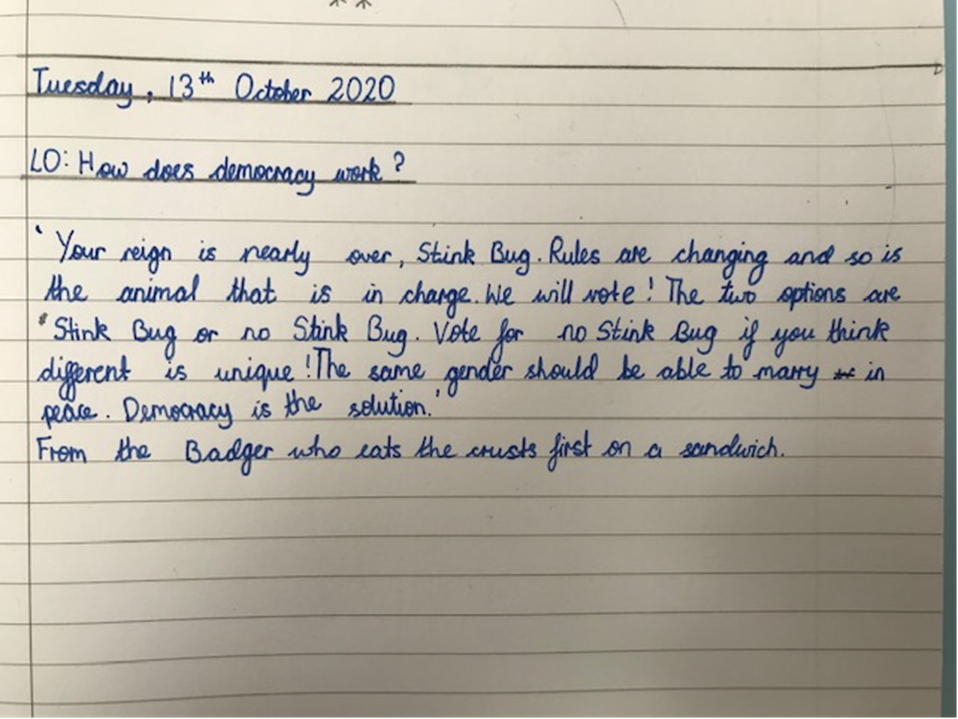 Tuesday, 13th October 2020
LO: How does democracy work?
'Your reign is nearly over, Stink Bug. Rules are changing and so is
the animal that is in charge. We will vote! The two options are
Stink Bug or no Stink Bug. Vote for no Stink Bug if you think
different is unique! The same gender should be able to marry in
peace. Democracy is the solution.'
From the Badger who eats the crusts first on a sandwich.